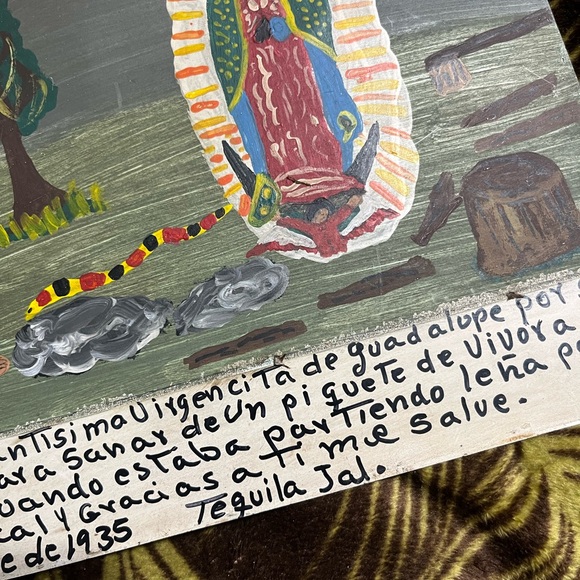 ntisima Virgencita de guadalupe por
ara sanar de un piquete de vivora
uando estaba partiendo leña p
cal y Gracias a ti me salve.
e de 1935 Tequila Jal.